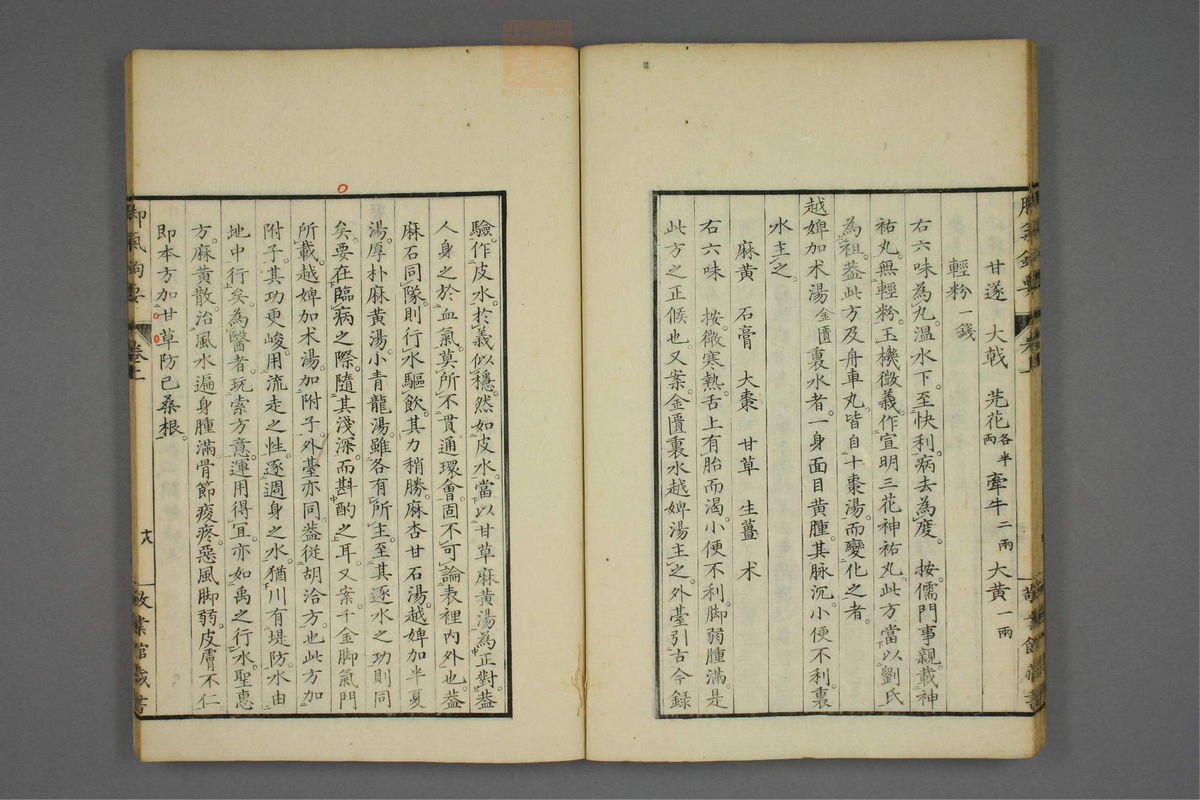 甘遂 大戟 芫花各半兩 牽牛二兩 大黃一兩
輕粉一錢
右六味為丸。溫水下。至快利。病去為度。 按。儒門事親。載神
祐丸。無輕粉。玉機微義。作宣明三花神祐丸。此方當以劉氏
為祖。蓋此方及舟車丸。皆自十棗湯。而變化之者。
越婢加朮湯金匱 裏水者。一身面目黃腫。其脉沉。小便不利。裏
水主之。
麻黃 石膏 大棗 甘草 生薑 朮
右六味 按。微寒熱。舌上有胎而渴。小便不利。脚弱腫滿。是
此方之正候也。又案金匱裏水越婢湯主之。外臺引古今錄
驗。作皮水。於義似穩。然如皮水。當以甘草麻黃湯。為正對。蓋
人身之於血氣。莫所不貫通環會。固不可論表裡內外也。蓋
麻石同隊。則行水驅飲。其力稍勝。麻杏甘石湯。越婢加半夏
湯。厚朴麻黃湯。小青龍湯。雖各有所主。至其逐水之功則同
矣。要在臨病之際。隨其淺深而斟酌之耳。又案。千金脚氣門
所載。越婢加朮湯。加附子。外臺亦同。蓋從胡洽方。也此方加
附子。其功更峻。用流走之性。逐週身之水。猶川有堤防。水由
地中行矣。為醫者。玩索方意。運用得宜。亦如禹之行水。聖惠
方。麻黃散。治風水遍身腫滿。骨節痠疼。惡風脚弱。皮膚不仁
即本方加甘草防已桑根。
脚氣 卷上
十八
館藏書